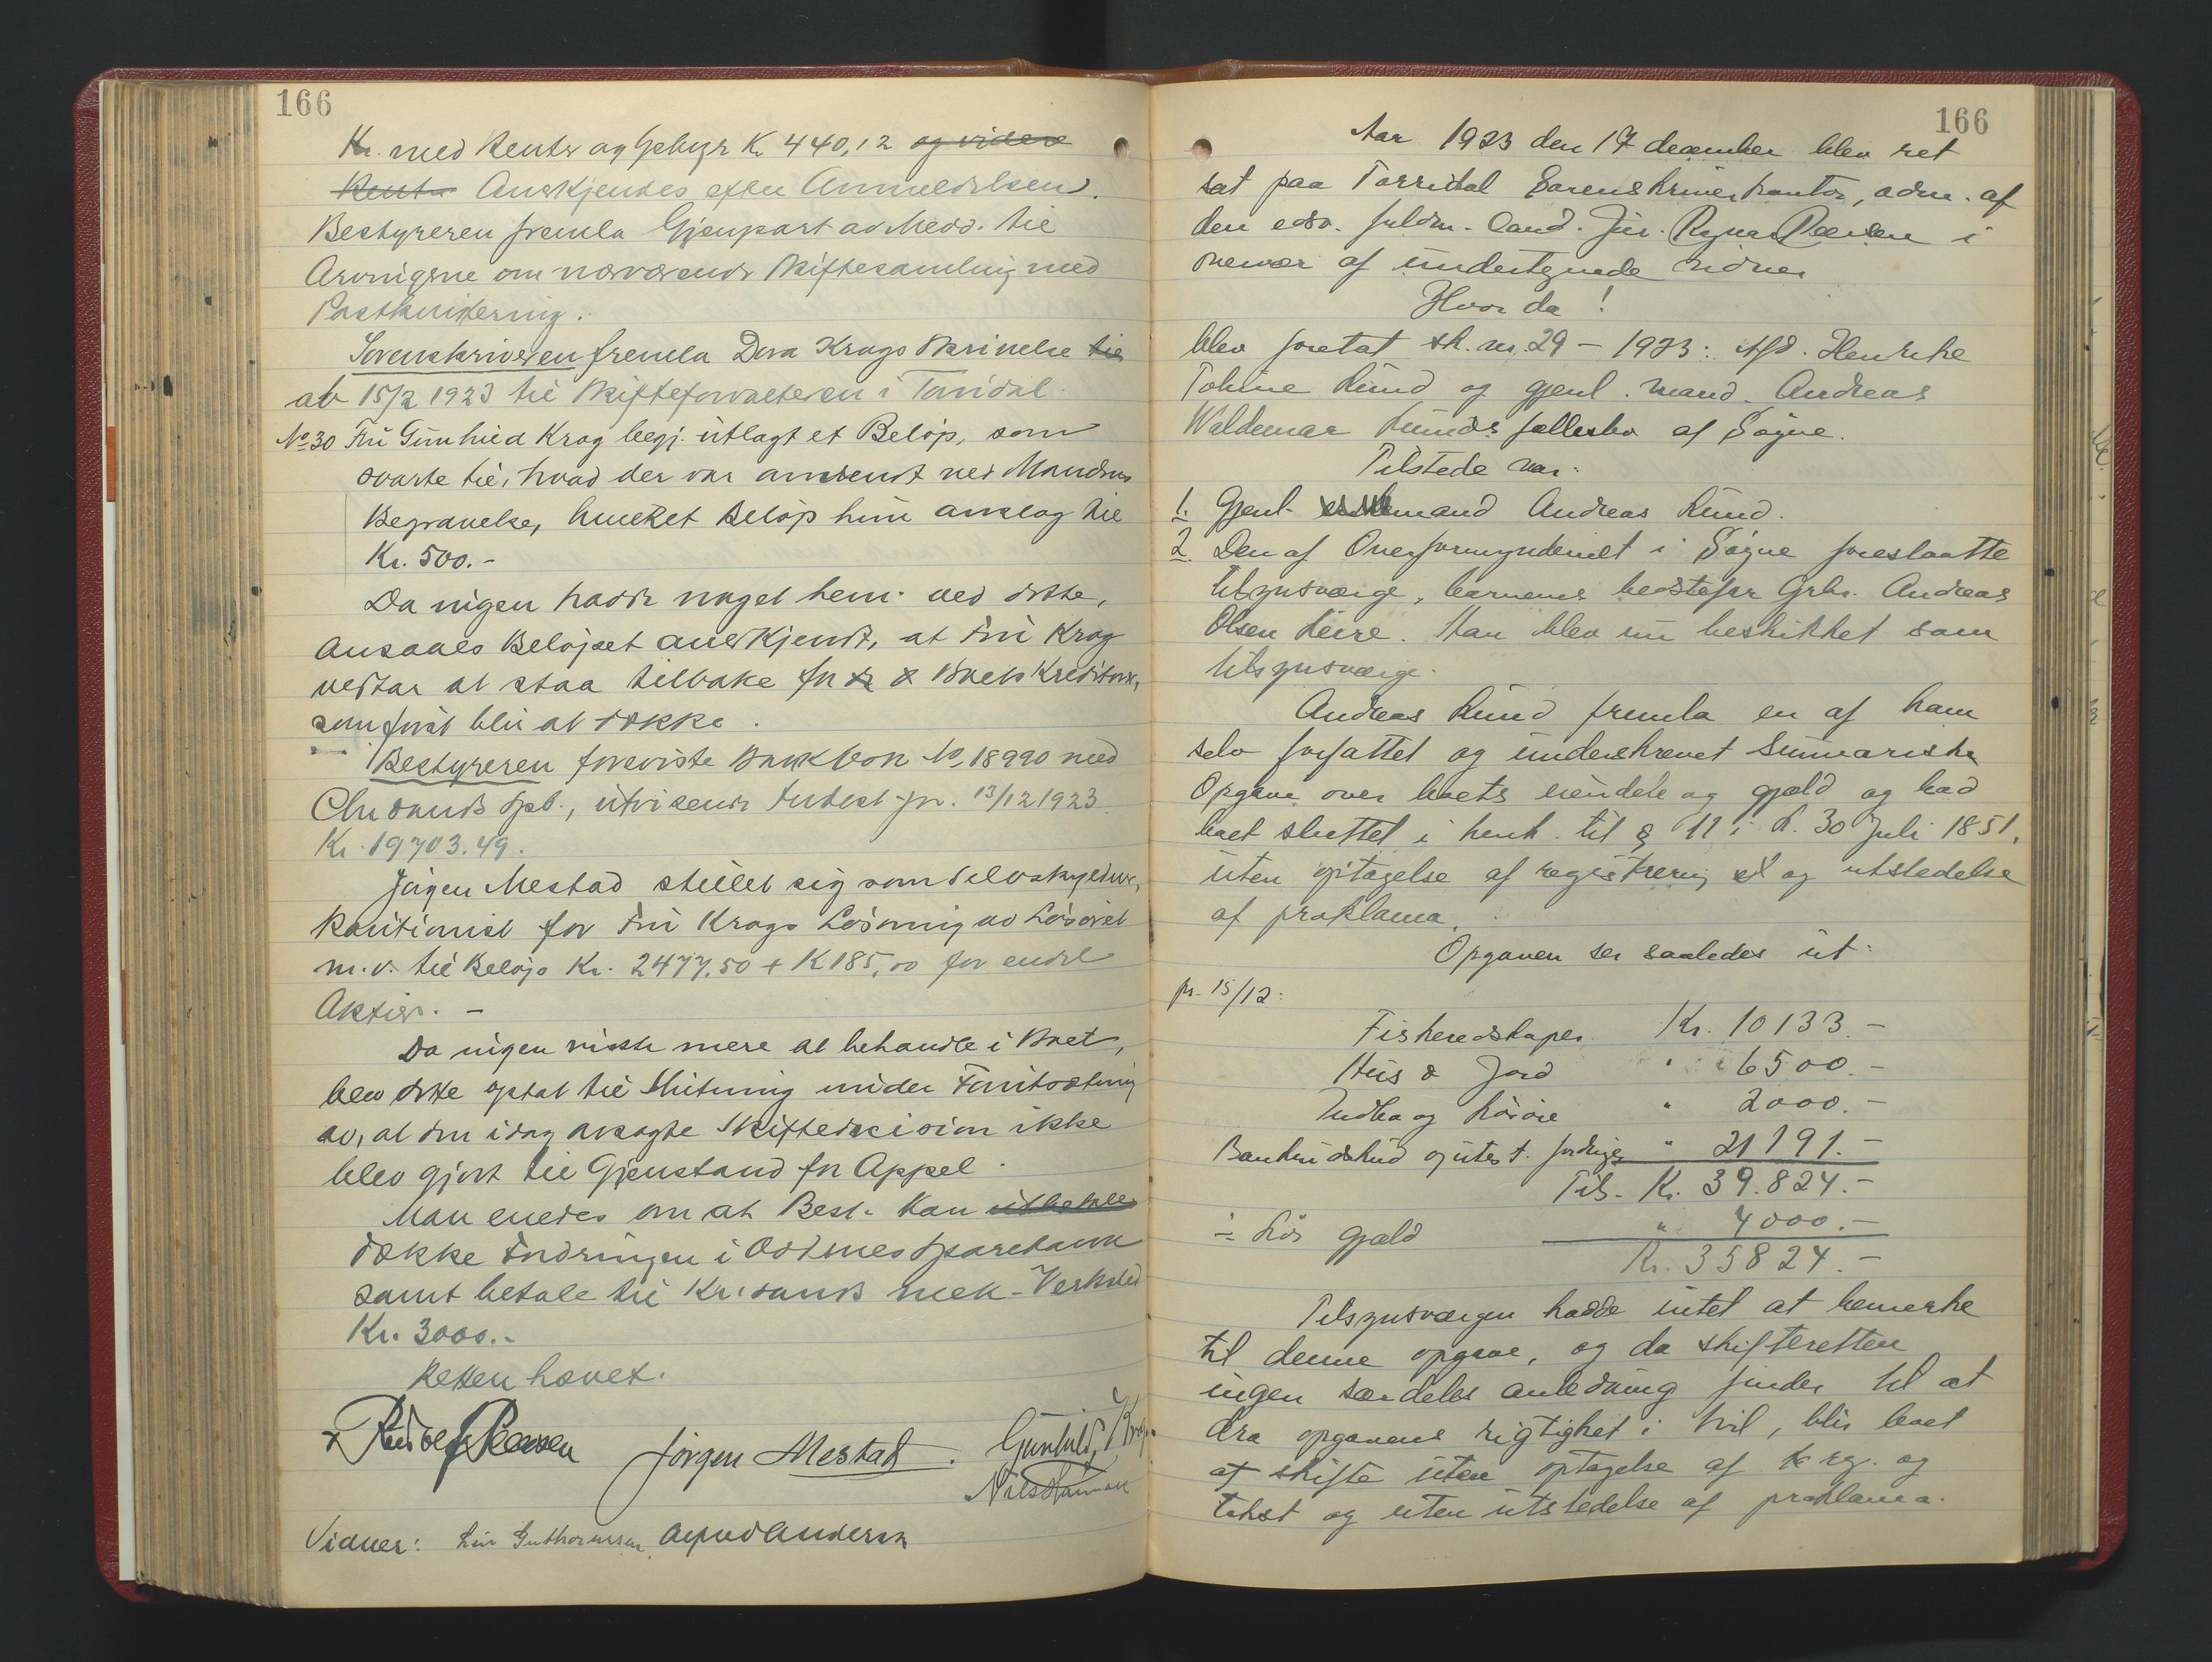 166
Kr. med Renter og Gebyr K. 440,12 og videre
Rente Anerkjendes efter Anmeldelsen.
Bestyreren fremla Gjenpart av Medd. til
Arvingerne om nærværende Skiftesamling med
Postkvittering.
Sorenskriveren fremla Dora Krags Skrivelse til
av 15/2 1923 til Skifteforvalteren i Torridal.
No 30 Fru Gunhild Krag begj. utlagt et Beløp, som
svarte til, hvad der var anvendt ved Mandens
Begravelse, hvilket Beløp hun anslog til
Kr. 500.-
Da ingen hadde noget hem. ved dette,
ansaaes Beløpet anerkjendt, at Fru Krag
vedtar at staa tilbake for Boets Kreditorer,
som først blir at dække.
Bestyreren foreviste Bankbok No 18990 med
Chrsands Spb., utvisende Indest. pr. 13/12 1923
Kr. 19703.49.
Jørgen Mestad stillet sig som selvskyldner
Kautionist for Fru Krags Løsning av Løsøret
m.v. til Beløp Kr. 2477,50 + K 185,00 for endel
Aktier. -
Da ingen visste mere at behandle i Boet,
blev dette optat til Slutning under Forutsætning
av, at den idag avsagte Skiftedecision ikke
blev gjort til Gjenstand for Appel.
Man enedes om at Best. kan utbetale
dække Fordringen i Oddernes Sparebank
samt betale til Kr.sands mek. Verksted
Kr. 3000.-
Retten hævet.
Jørgen Mestad. Gunhild Krag
Vidner: Guthormsen Andersen
166
Aar 1923 den 17 december blev ret
sat paa Torridal Sorenskriverkontor, adm. af
den edsv. fuldm. Cand. Jur. i
nærvær af undertegnede vidner
Hvor da!
blev foretat sk. nr. 29 - 1923: Afd. Henrikke
Tobine Lund og gjenl. mand Andreas
Waldemar Lunds fællesbo af Søgne.
Tilstede var:
1. Gjenl. mand Andreas Lund.
2. Den af Overformynderiet i Søgne foreslaatte
tilsynsværge, barnenes bedstefar Grbr. Andreas
Olsen Leire. Han blev nu beskikket som
tilsynsværge.
Andreas Lund fremla en af ham
selv forfattet og underskrevet summarisk
Opgave over boets eiendele og gjæld og bad
boet sluttet i henh. til § 11 i L. 30 Juli 1851,
uten optagelse af registrering og utstedelse
af proklama.
Opgaven ser saaledes ut:
pr. 15/12:
Fiskeredskaper Kr. 10133.-
Hus & Jord " 6500.-
Indbo og løsøre " 2000.-
Bankindskud og utest. fordringer " 21191.-
Tils. Kr. 39.824.-
÷ Løs gjæld " 4000.-
Kr. 35824.-
Tilsynsværgen hadde intet at bemerke
til denne opgave, og da skifteretten
ingen særdeles anledning finder til at
dra opgavens rigtighet i tvil, blir boet
at skifte uten optagelse af reg. og
takst og uten utstedelse af proklama.